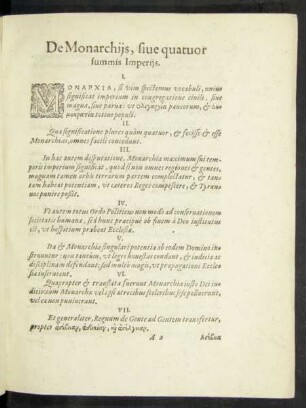 De Monarchijs, siue quatuor
summis Imperijs.
I.
MONAPXIA, si vim spectemus vocabuli, unius
significat imperium in congregatione ciuili, siue
magna, siue parua: ut ὀλιγαρχία paucorum, & δημοκρατία
totius populi.
II.
Qua significatione plures quàm quatuor, & fuisse & esse
Monarchias, omnes facilè concedunt.
III.
In hac autem disputatione, Monarchia maximum sui temporis
imperium significat, quod si non omnes regiones & gentes,
magnam tamen orbis terrarum partem complectitur, & tantam
habeat potentiam, ut cæteros Reges compescere, & Tyrannos
punire possit.
IV.
Vt autem totus Ordo Politicus non modò ad conseruationem
societatis humanæ, sed hunc præcipuè ob finem à Deo institutus
est, ut hospitium præbeat Ecclesiæ.
V.
Ita & Monarchia singulari potentia ab eodem Domino instruuntur:
quo tantùm, ut leges honestas condant, & iudicia ac
disciplinam defendant: sed multò magis, ut propagationi Ecclesiæ
inseruiant.
VI.
Quapropter & translatæ fuerunt Monarchiæ iusto Dei iudicio,
cùm Monarchæ vel ipsi atrocibus sceleribus sese polluerunt,
vel ea non punierunt.
VII.
Et generaliter, Regnum de Gente ad Gentem transfertur,
propter
A 2